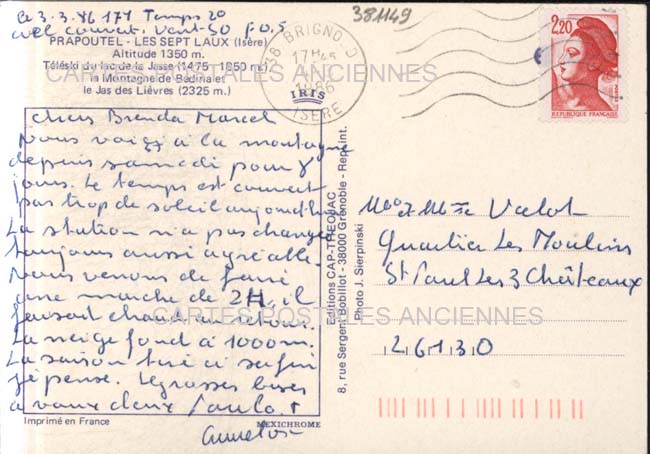 le 3.3.86 17H Temps 20
ciel couvert. Vent-SO F.0.5
PRAPOUTEL - LES SEPT LAUX (Isère)
Altitude 1350 m.
Téléski du lac de la Jasse (1475 - 1850 m.)
la Montagne de Bédina et
le Jas des Lièvres (2325 m.)
381149
38 BRIGNOUD
17H45
1986
ISERE
IRIS
2,20
REPUBLIQUE FRANÇAISE
CARTES POSTALES ANCIENNES
chers Brenda Marcel
Nous à la montagne
depuis samedi pour 8
jours. Le temps est couvert
pas trop de soleil aujourd'hui
La station n'a pas changé
toujours aussi agréable.
Nous venons de faire
une marche de 2H, il
faisait chaud au retour.
La neige fond à 1000m.
La saison tire à sa fin
je pense. Le grosses bises
à vous deux Paulo +
Editions CAP-THEOJAC
8, rue Sergent Bobillot - 38000 Grenoble - Rep. Int.
Photo J. Sierpinski
Mr et Mme Valot
Quartier Les Moulins
St Paul Les 3 Châteaux
26130
CARTES POSTALES ANCIENNES
Imprimé en France
MEXICHROME